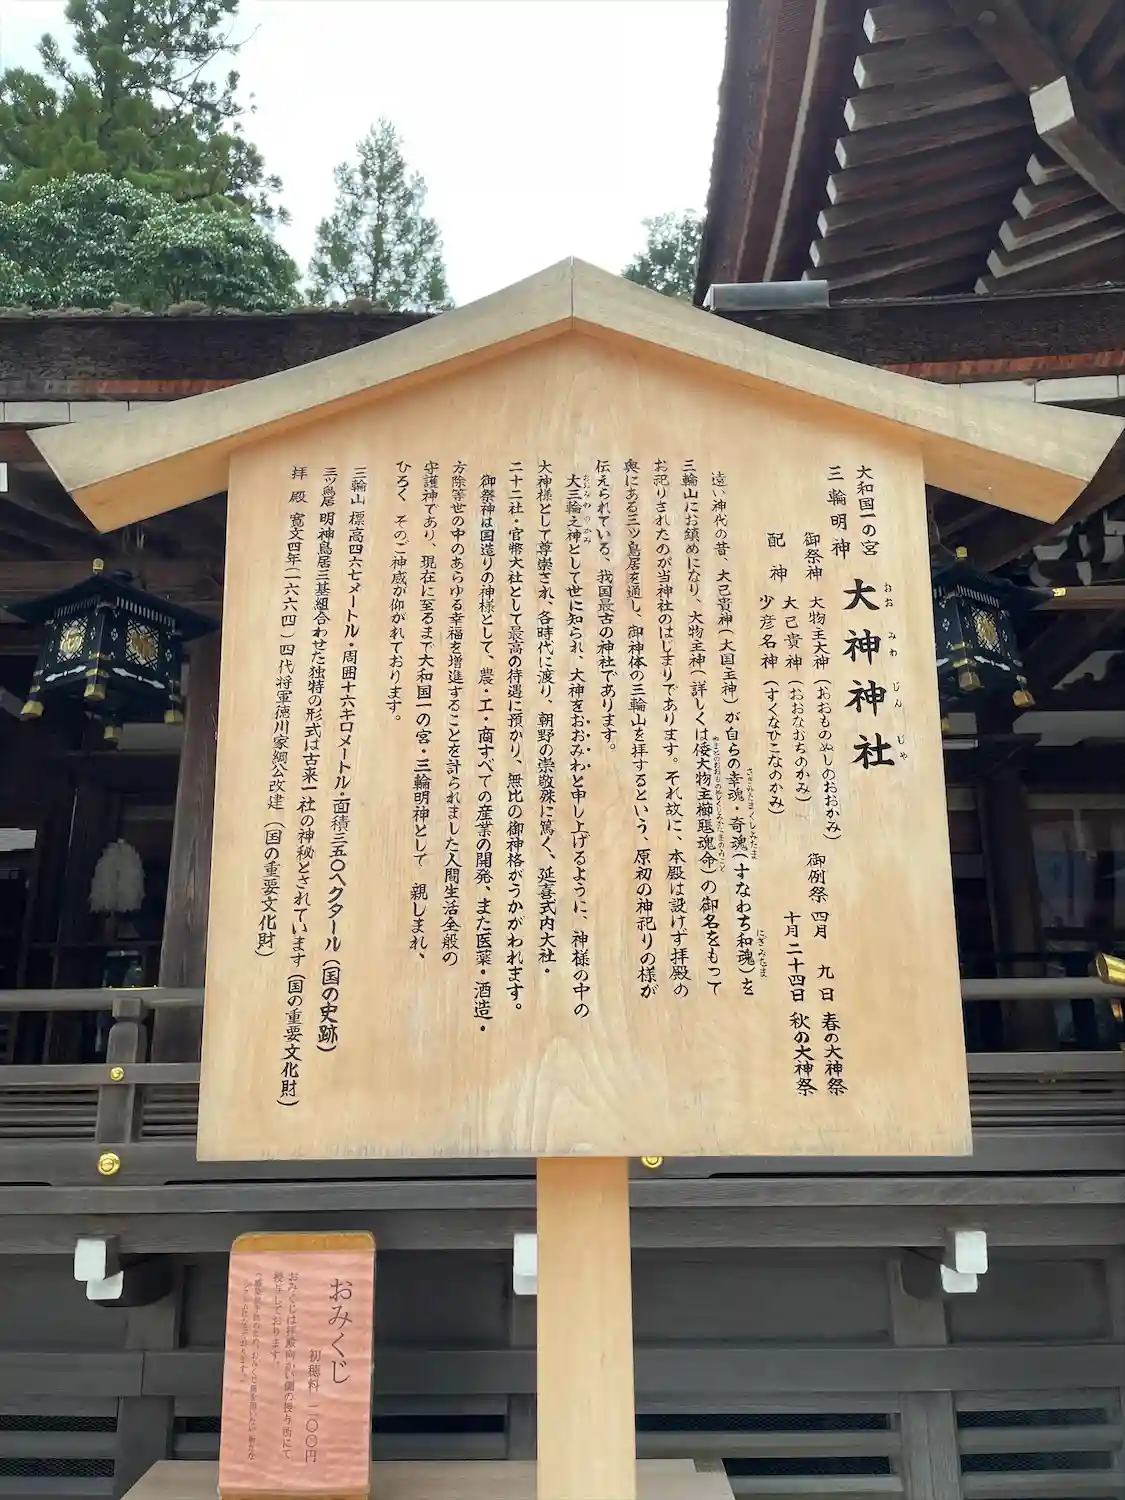 大和国一の宮
三輪明神
大神神社
おお みわ じん じゃ
御祭神 大物主大神（おおものぬしのおおかみ）
配神 大己貴神（おおなむちのかみ）
少彦名神（すくなひこなのかみ）
御例祭 四月 九日 春の大神祭
十月二十四日 秋の大神祭
遠い神代の昔、大己貴神（大国主神）が自らの幸魂・奇魂（すなわち和魂）を
さきみたま くしみたま にぎみたま
三輪山にお鎮めになり、大物主神（詳しくは倭大物主櫛𤭖魂命）の御名をもって
やまとのおおものぬしくしみかたまのみこと
お祀りされたのが当神社のはじまりであります。それ故に、本殿は設けず拝殿の
奥にある三ツ鳥居を通し、御神体の三輪山を拝するという、原初の神祀りの様が
伝えられている、我国最古の神社であります。
大三輪之神として世に知られ、大神をおおみわと申し上げるように、神様の中の
おおみわのかみ
大神様として尊崇され、各時代に渡り、朝野の崇敬殊に篤く、延喜式内大社・
二十二社・官幣大社として最高の待遇に預かり、無比の御神格がうかがわれます。
御祭神は国造りの神様として、農・工・商すべての産業の開発、また医薬・酒造・
方除等世の中のあらゆる幸福を増進することを計られました人間生活全般の
守護神であり、現在に至るまで大和国一の宮・三輪明神として 親しまれ、
ひろく そのご神威が仰がれております。
三輪山 標高四六七メートル・周囲十六キロメートル・面積三五〇ヘクタール（国の史跡）
三ツ鳥居 明神鳥居三基組合わせた独特の形式は古来一社の神秘とされています（国の重要文化財）
拝殿 寛文四年（一六六四）四代将軍徳川家綱公改建（国の重要文化財）
おみくじ
初穂料 二〇〇円
おみくじは拝殿向かい側の授与所にて
授与しております。